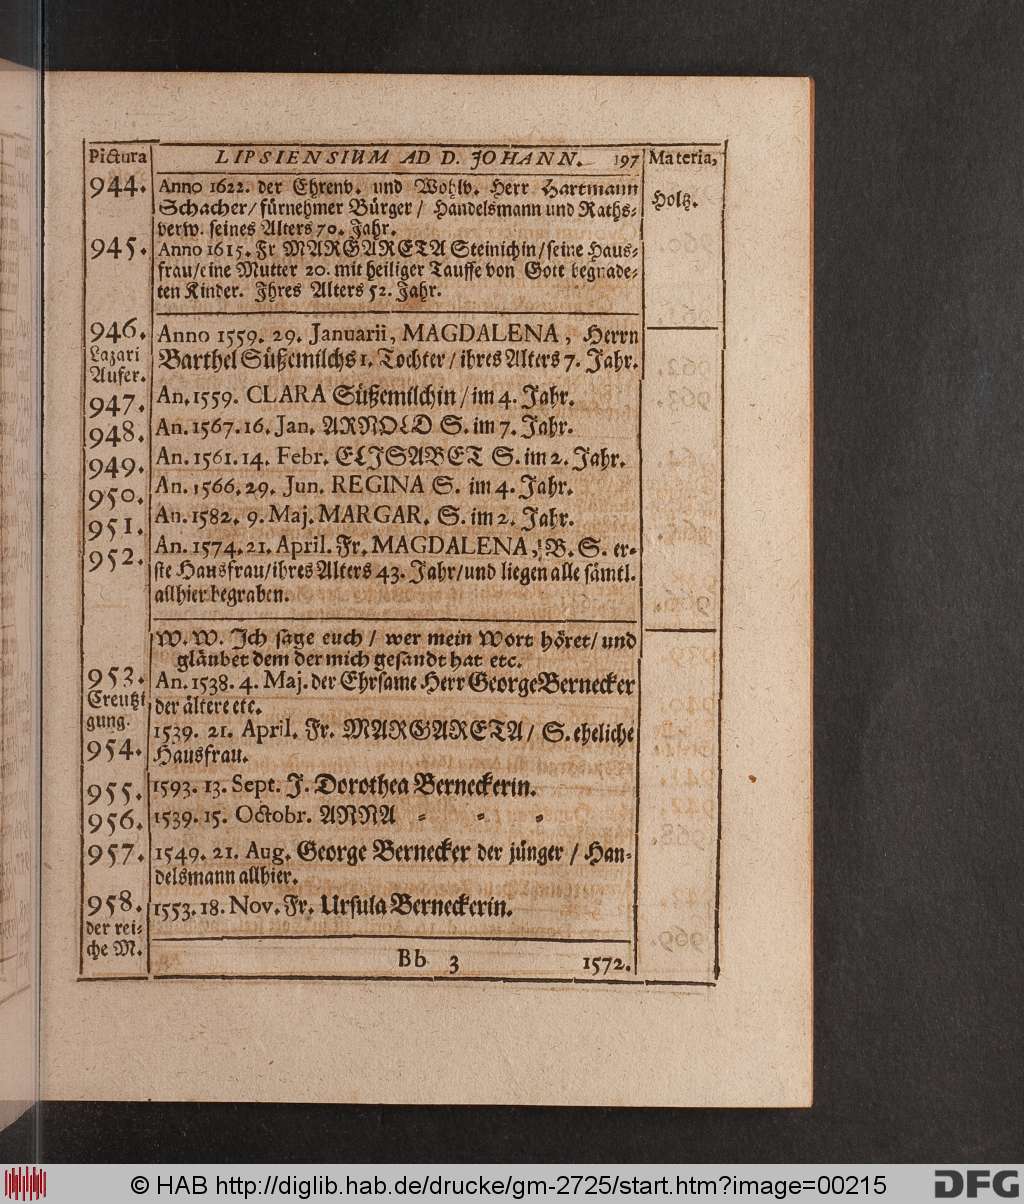 Pictura LIPSIENSIUM AD D. JOHANN. 197 Materia,
944. Anno 1622. der Ehrenv. und Wohlv. Herr Hartmann
Schacher/ fürnehmer Bürger / Handelsmann und Raths- Holtz.
verw. seines Alters 70. Jahr.
945. Anno 1615. Fr MARGARETA Steinichin/seine Haus-
frau/eine Mutter 20. mit heiliger Tauffe von Gott begnade-
ten Kinder. Ihres Alters 52. Jahr.
946. Anno 1559. 29. Januarii, MAGDALENA, Herrn
Lazari Barthel Süßemilchs 1. Tochter/ ihres Alters 7. Jahr.
Aufer.
947. An. 1559. CLARA Süßemilchin/im 4. Jahr.
948. An. 1567. 16. Jan. ARNOLD S. im 7. Jahr.
949. An. 1561. 14. Febr. ELISABET S. im 2. Jahr.
950. An. 1566. 29. Jun. REGINA S. im 4. Jahr.
951. An. 1582. 9. Maj. MARGAR. S. im 2. Jahr.
952. An. 1574. 21. April. Fr. MAGDALENA, B. S. er-
ste Hausfrau/ihres Alters 43. Jahr/und liegen alle sämtl.
allhier begraben.
W. W. Ich sage euch/ wer mein Wort höret/ und
gläubet dem der mich gesandt hat etc.
953. An. 1538. 4. Maj. der Ehrsame Herr George Bernecker
Creutzi der ältere etc.
gung. 1539. 21. April. Fr. MARGARETA/ S. eheliche
954. Hausfrau.
955. 1593. 13. Sept. J. Dorothea Berneckerin.
956. 1539. 15. Octobr. ANNA - - -
957. 1549. 21. Aug. George Bernecker der jünger / Han-
delsmann allhier.
958. 1553. 18. Nov. Fr. Ursula Berneckerin.
der rei-
che M.
Bb 3 1572.
© HAB http://diglib.hab.de/drucke/gm-2725/start.htm?image=00215
DFG